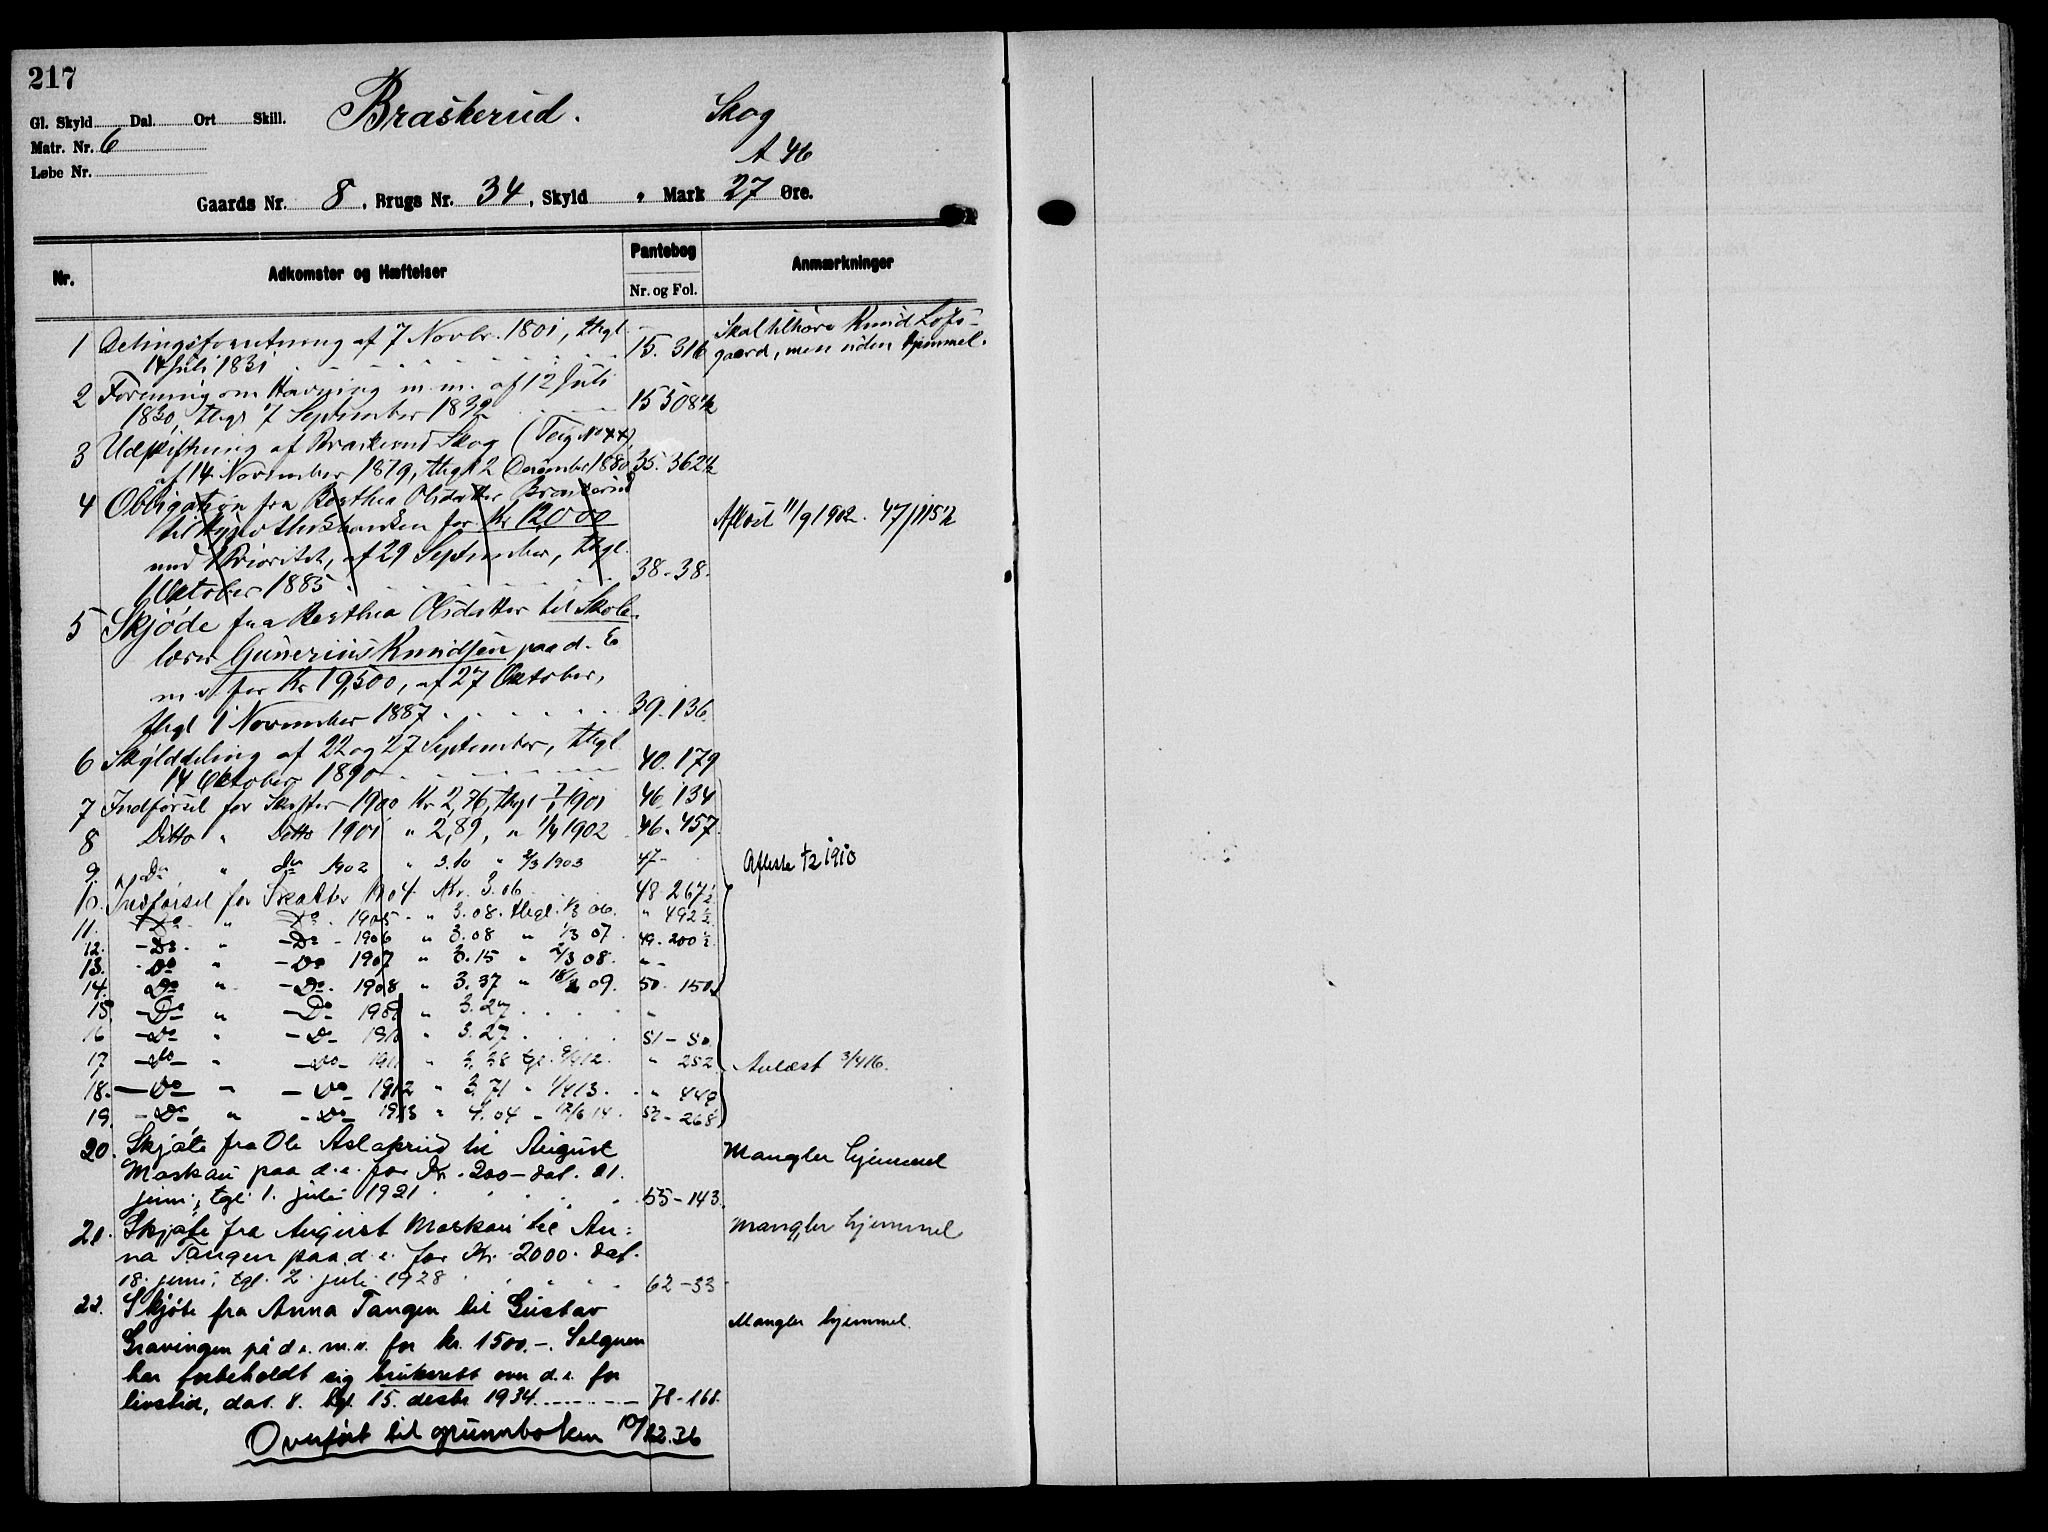 217
Gl. Skyld Dal. Ort Skill.
Braskerud. Skog
Matr. Nr. 6
A 46
Løbe Nr.
Gaards Nr. 8, Brugs Nr. 34, Skyld " Mark 27 Øre.
Nr. Adkomster og Hæftelser Pantebog Nr. og Fol. Anmærkninger
1 Delingsforretning af 7 Novbr. 1801, thgl. Skal tilhøre Knud Lofs-
14 Juli 1831 15. 316 gaard, men uden hjemmel.
2 Forening om Havning m. m. af 12 Juli
1830, thgl 7 September 1832 15 508½
3 Udskiftning af Braskerud Skog (Teig No 44)
af 14 November 1879, thgl 2 December 1880 35. 362½
4 Obligation fra Berthea Olsdatter Braskerud
til Hypothekbanken for Kr 12000 Aflöst 11/9 1902. 47/115½
med 1 Prioritet, af 29 September, thgl.
6 Oktober 1885 38-38.
5 Skjøde fra Berthea Olsdatter til Skole-
lærer Gunerius Knudsen paa d. E
m v for Kr 19,500, af 27 Oktober,
thgl 1 November 1887 39.136.
6 Skylddeling af 22 og 27 September, thgl
14 Oktober 1890 40.179
7 Indførsel for Skatter 1900 Kr 2,76, thgl 1901 46.134
8 Ditto " Ditto 1901 " 2,89, " 1/4 1902 46.457
9. Do " do 1902 " 3.10 " 2/3 1903 47- Afleste 1/2 1910
10. Indførsel for Skatter 1904 Kr. 3.06 48 267½
11. Do " Do. 1905 " 3.08. thgl. 1/3 06. " 492½
12. -Do. " -Do - 1906 " 3.08 " 1/3 07. 49-200½
13. Do " -Do 1907 " 3.15 " 2/3 08. " -
14. Do " -Do. 1908 " 3.37 " 18/2 09. 50. 150
15 -Do " -Do 1909 " 3.27 "
16 -Do " -Do 1910 " 3.27 51-50
17 -do- " -do- 1911 " 3,38 tgl. 9/4 12. " 252 Avlæst 3/4 16.
18. -Do- " -Do 1912 " 3.71 " 1/4 13. " 449
19. -Do " -Do 1913 " 4.04 " 12/6 14. 52-268
20. Skjøte fra Ole Aslaksrud til August Mangler hjemmel
Moskau paa d. e. for Kr. 200- dat. 21.
juni, tgl. 1. juli 1921 55-143.
21. Skjøte fra August Moskau til An= Mangler hjemmel
na Tangen paa d. e. for Kr. 2000. dat.
18. juni, tgl. 2. juli 1928 62-33
22. Skjøte fra Anna Tangen til Gustav
Gravingen på d e. m. v. for kr. 1500.-. Selgeren Mangler hjemmel.
har forbeholdt sig bruksrett over d. e. for
livstid, dat. 8. tgl. 15. desbr 1934. 78-168.
Overført til grunnboken 10/12.36